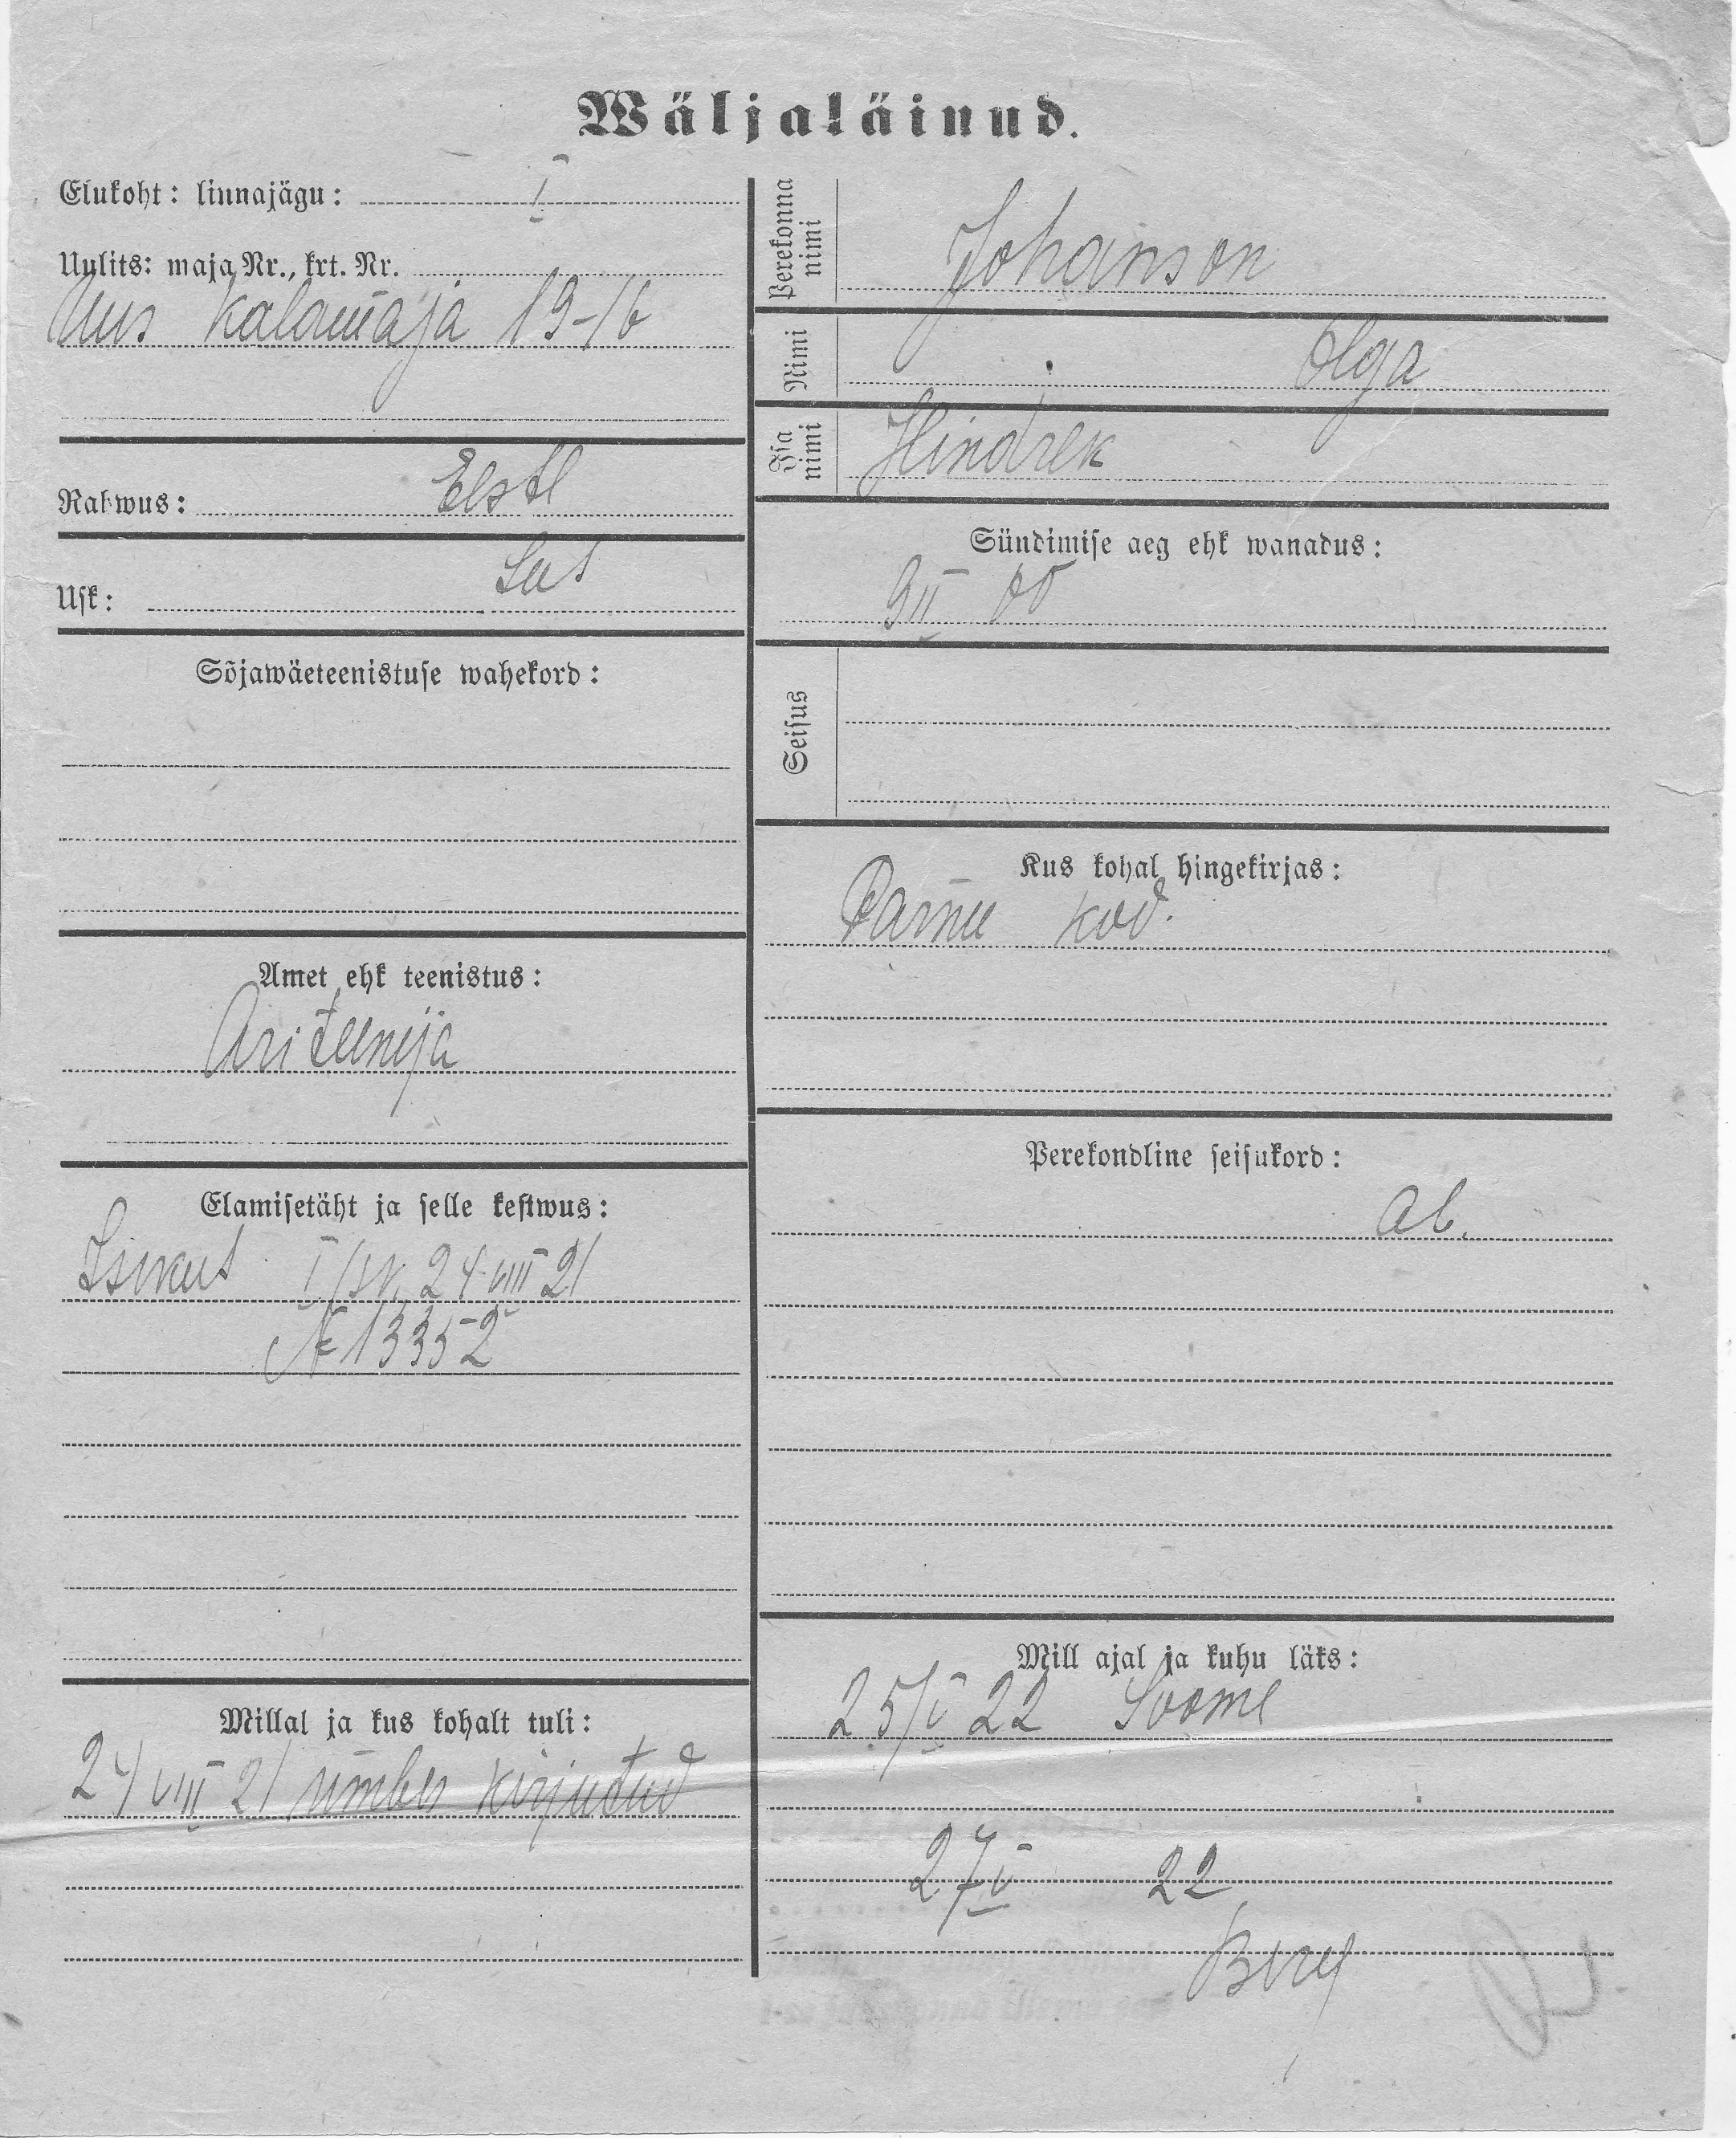 Wäljaläinud.
Elukoht: linnajägu: I
Uulits: maja Nr., krt. Nr.
Uus Kalamaja 19-16
Rahwus: Eestl
Usk: Lut
Sõjawäeteenistuse wahekord:
Amet ehk teenistus:
Äriteenija
Elamisetäht ja selle kestwus:
Isikut I jsk. 24 VIII 21
№ 13352
Millal ja kus kohalt tuli:
24 VIII 21 ümber kirjutud
Perekonna nimi
Johanson
Nimi
Olga
Isa nimi
Hindrek
Sündimise aeg ehk wanadus:
9 II 00
Seisus
Kus kohal hingekirjas:
Pärnu kod.
Perekondline seisukord:
ab.
Mill ajal ja kuhu läks:
25/V 22 Soome
27 V 22
Berg